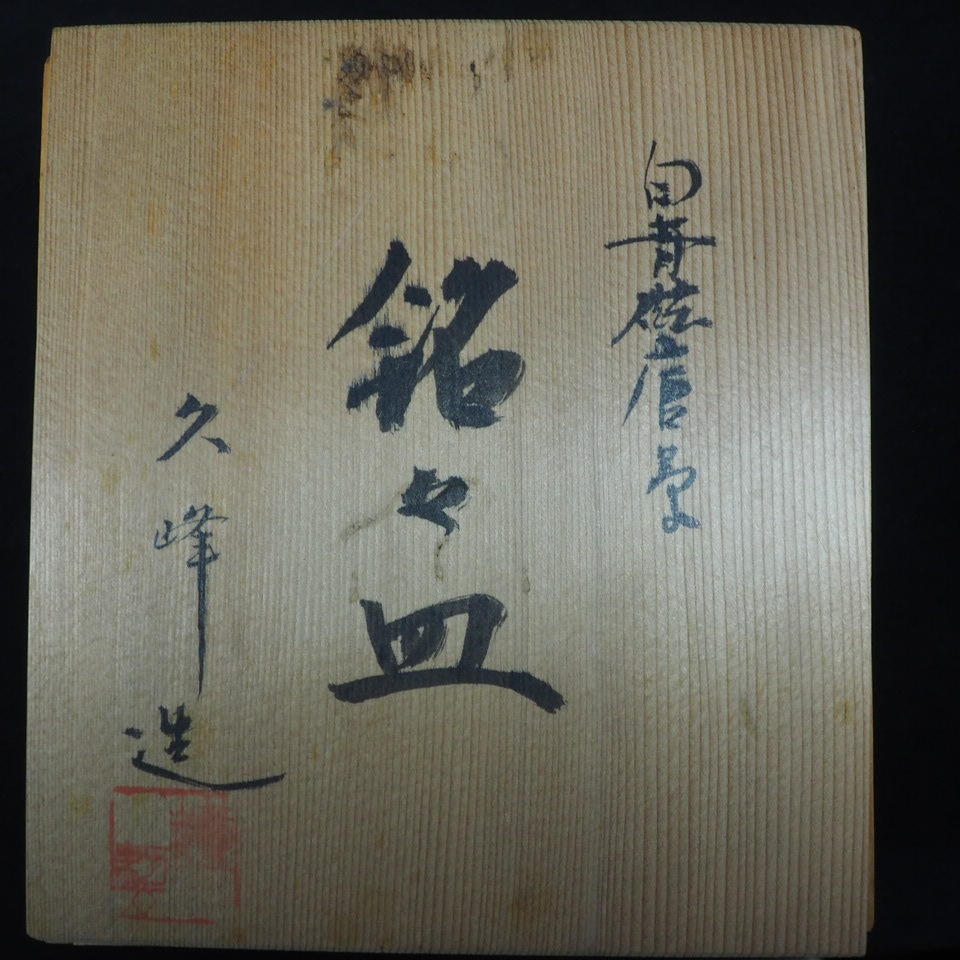 白青磁唐草
銘々皿
久峰造